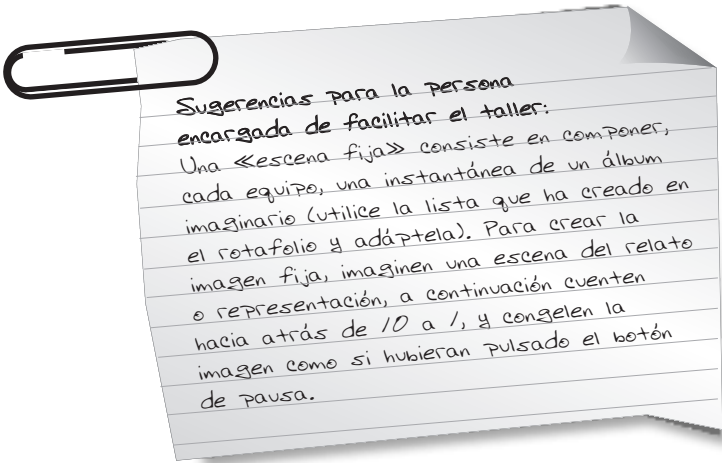 Sugerencias para la persona
encargada de facilitar el taller:
Una «escena fija» consiste en componer,
cada equipo, una instantánea de un álbum
imaginario (utilice la lista que ha creado en
el rotafolio y adáptela). Para crear la
imagen fija, imaginen una escena del relato
o representación, a continuación cuenten
hacia atrás de 10 a 1, y congelen la
imagen como si hubieran pulsado el botón
de pausa.